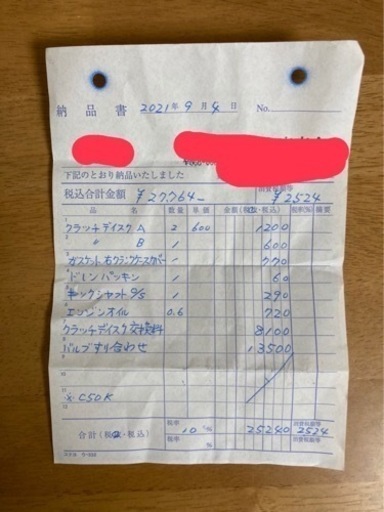 納品書 2021年9月4日 No.
下記のとおり納品いたしました
税込合計金額 ¥27,764- 消費税額等 ¥2524
品名 数量 単価 金額(税抜・税込) 税率(%) 摘要
1 クラッチディスク A 2 600 1200
2 〃 B 1 600
3 ガスケット右クランクケースカバー 1 770
4 ドレンパッキン 1 60
5 キックシャフト O/S 1 290
6 エンジンオイル 0.6 720
7 クラッチディスク交換料 8100
8 バルブすり合わせ 13500
9
10
11
※ C50K
合計(税抜・税込) 税率 10% 税率 % 25240 消費税額等 2524